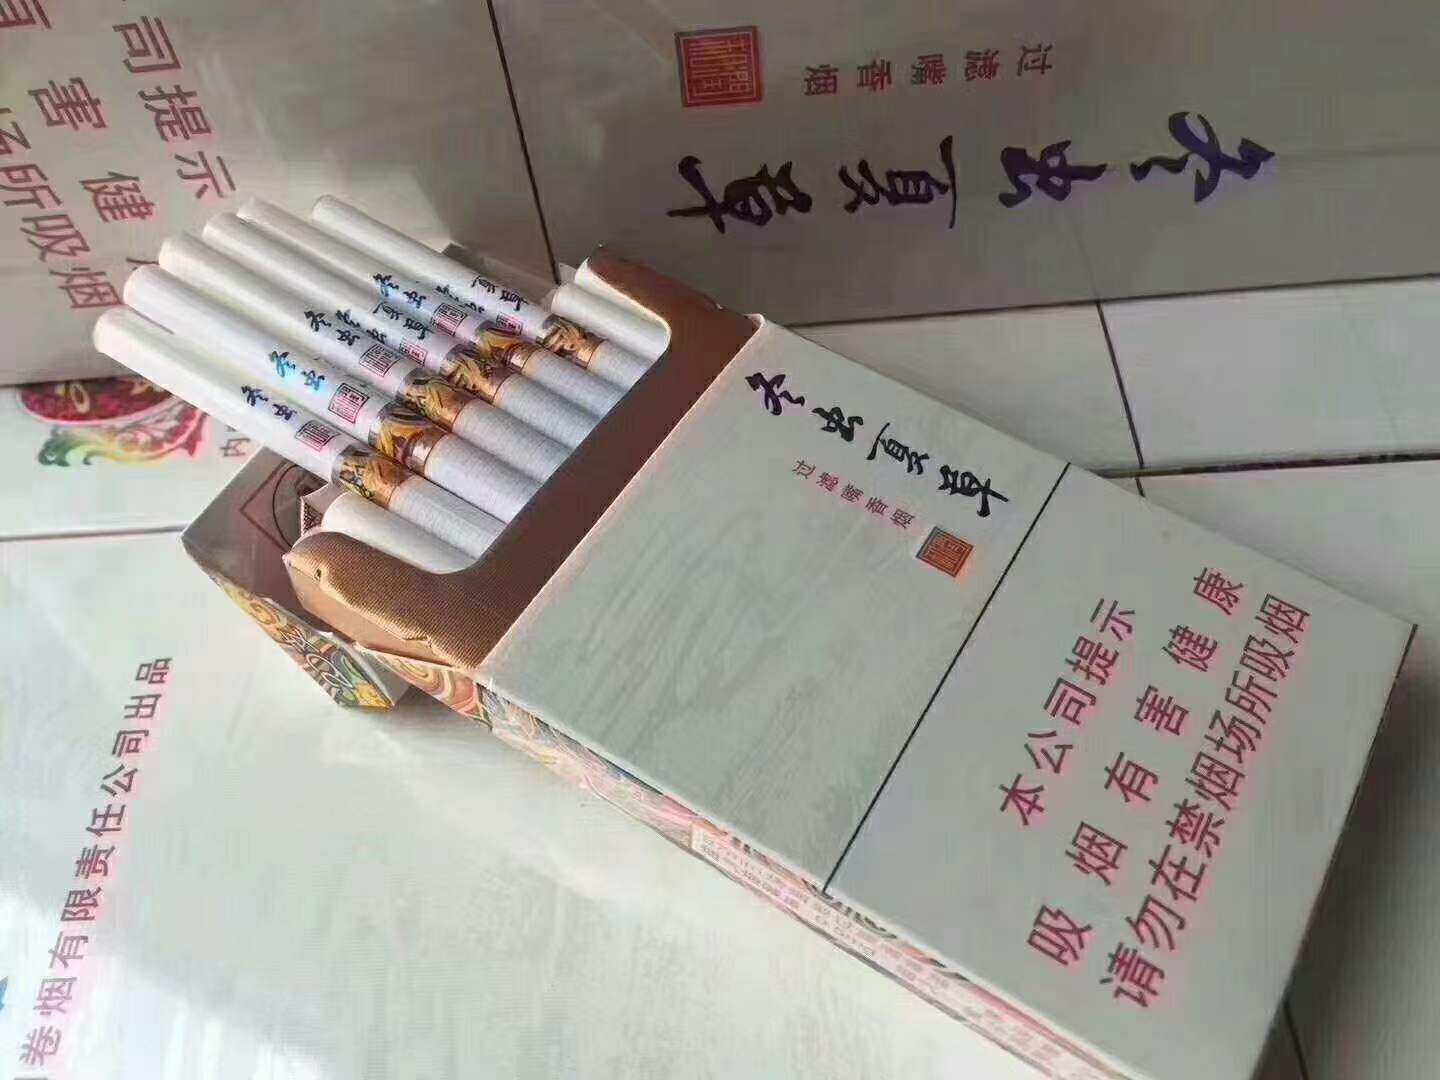 过滤嘴香烟
冬虫夏草
司提示
有害健
场所吸烟
冬虫夏草
冬虫夏草
冬虫
冬虫
冬虫
冬虫夏草
过滤嘴香烟
本公司提示
吸烟有害健康
请勿在禁烟场所吸烟
内
卷烟有限责任公司出品